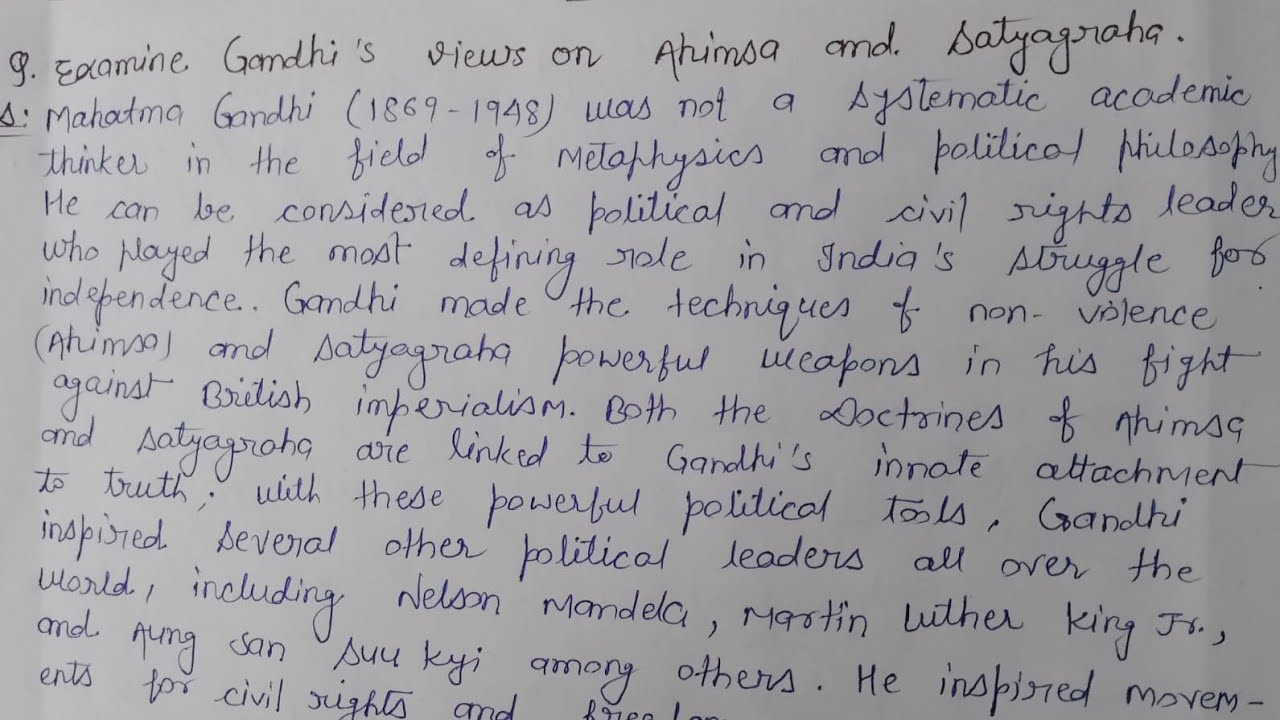 Q. Examine Gandhi's views on Ahimsa and Satyagraha.
S: Mahatma Gandhi (1869-1948) was not a systematic academic
thinker in the field of metaphysics and political philosophy
He can be considered as political and civil rights leader
who played the most defining role in India's struggle for
independence. Gandhi made the techniques of non-violence
(Ahimsa) and Satyagraha powerful weapons in his fight
against British imperialism. Both the Doctrines of Ahimsa
and Satyagraha are linked to Gandhi's innate attachment
to truth. With these powerful political tools, Gandhi
inspired several other political leaders all over the
world, including Nelson Mandela, Martin Luther King Jr.,
and Aung San Suu Kyi among others. He inspired movem-
ents for civil rights and